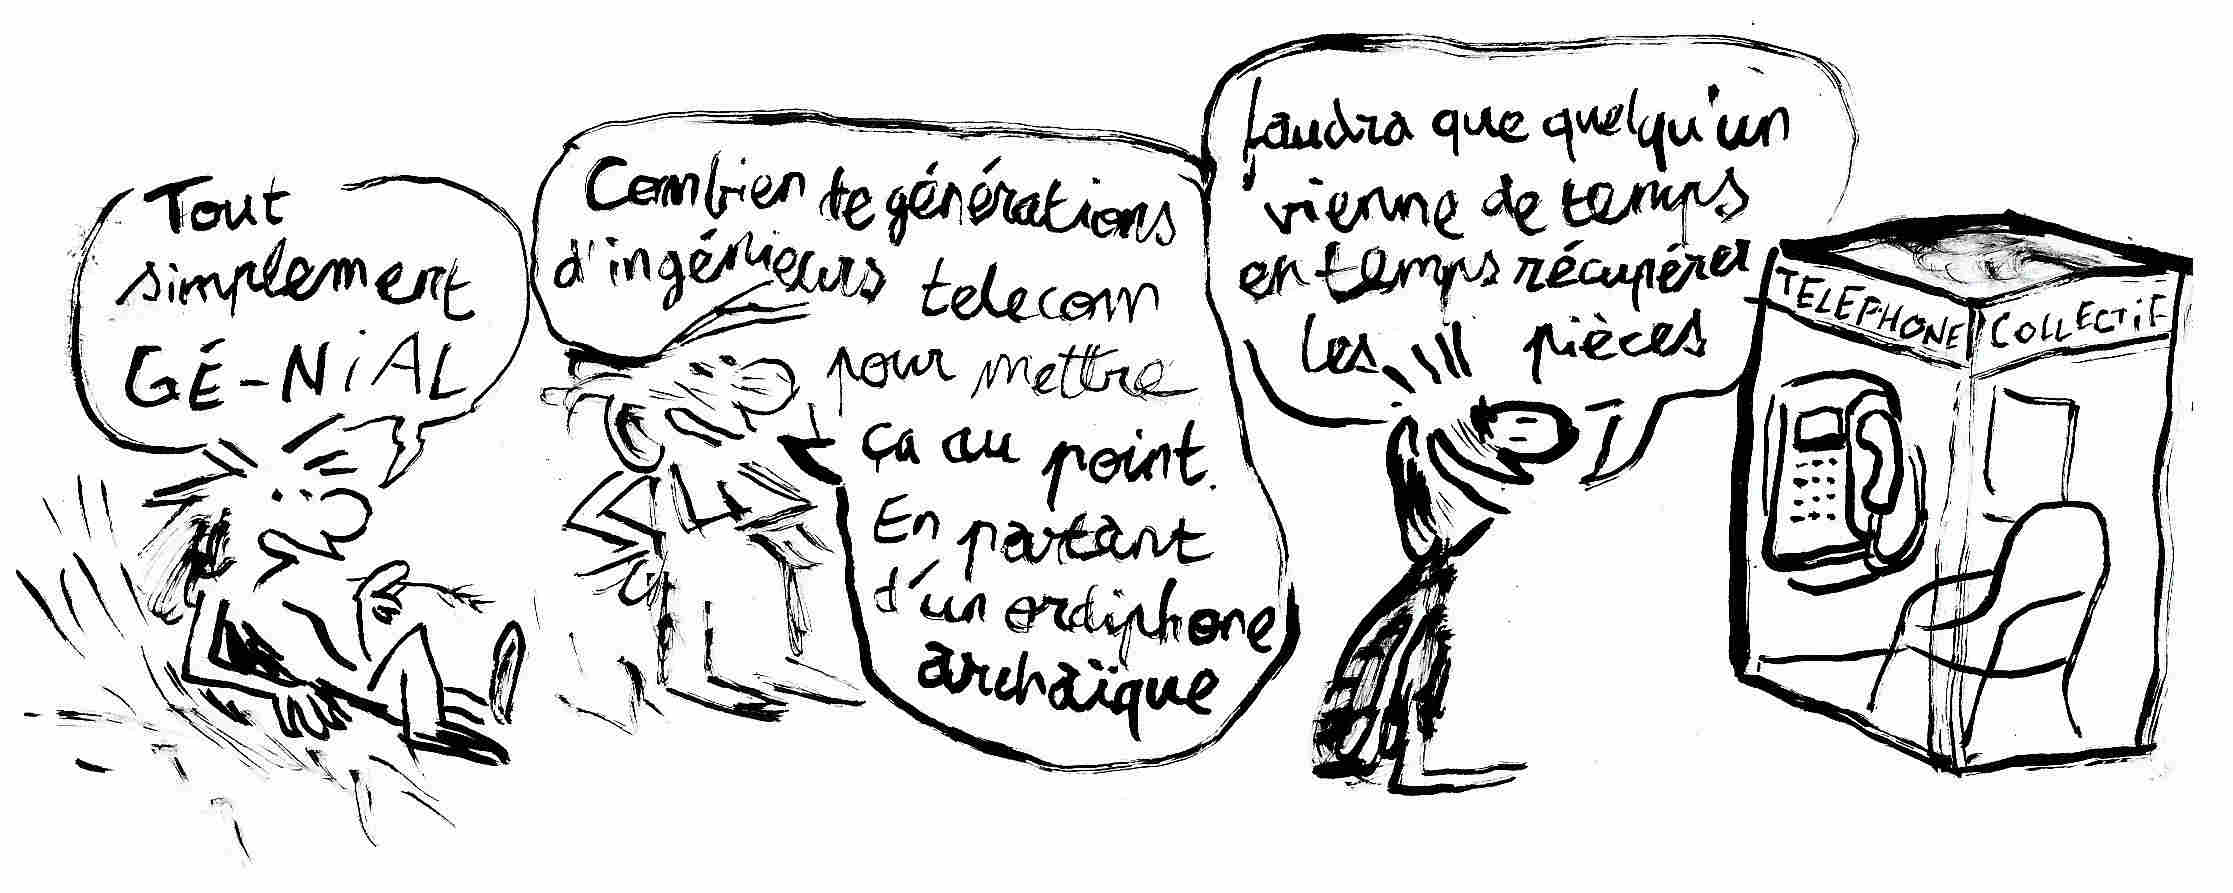 Tout
simplement
GÉ-NiAL
Combien de générations
d'ingénieurs telecom
pour mettre
ça au point.
En partant
d'un ordiphone
archaïque
faudra que quelqu'un
vienne de temps
en temps récupérer
les pièces
TELEPHONE COLLECTiF